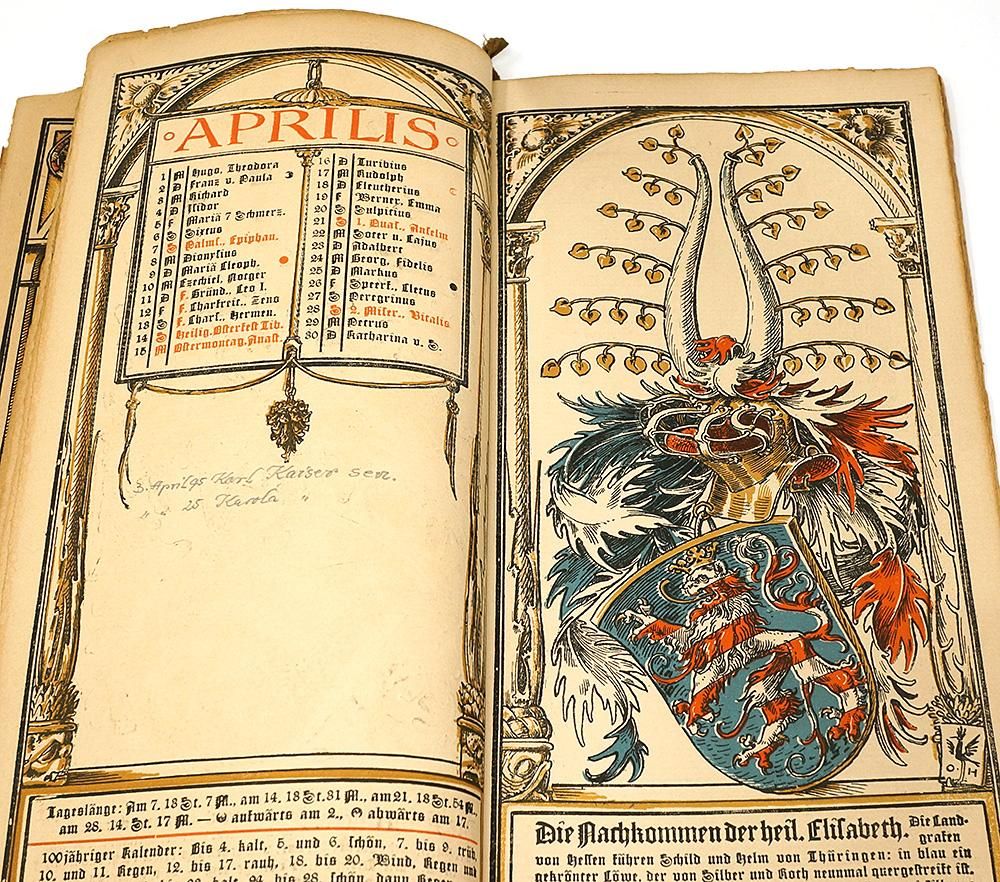 APRILIS
1 M Hugo, Theodora
2 D Franz v. Paula
3 M Richard
4 D Isidor
5 F Mariä 7 Schmerz.
6 S Sixtus
7 S Palms., Epiphan.
8 M Dionysius
9 D Mariä Cleoph.
10 M Ezechiel, Notger
11 D F. Gründ., Leo I.
12 F F. Charfreit., Zeno
13 S F. Chars., Hermen.
14 S Heilig. Osterfest Tib.
15 M Ostermontag. Anast.
16 D Turibius
17 M Rudolph
18 D Eleutherius
19 F Werner, Emma
20 S Sulpitius
21 S 1. Quas., Anselm
22 M Soter u. Cajus
23 D Adalbert
24 M Georg, Fidelis
25 D Markus
26 F Speerf., Cletus
27 S Peregrinus
28 S 2. Miser., Vitalis
29 M Petrus
30 D Katharina v. S.
3. April 95 Karl Kaiser sen.
" " 25 Karola "
Tageslänge: Am 7. 13 St. 7 M., am 14. 13 St. 31 M., am 21. 13 St. 54 M.,
am 28. 14. St. 17 M. — aufwärts am 2., abwärts am 17.
100jähriger Kalender: Bis 4. kalt, 5. und 6. schön, 7. bis 9. trüb,
10. und 11. Regen, 12. bis 17. rauh, 18. bis 20. Wind, Regen und
22. kalt, 24. bis 28. schön, dann Regen
Die Nachkommen der heil. Elisabeth. Die Land-
grafen
von Hessen führen Schild und Helm von Thüringen: in blau ein
gekrönter Löwe, der von Silber und Roth neunmal quergestreift ist.
O H